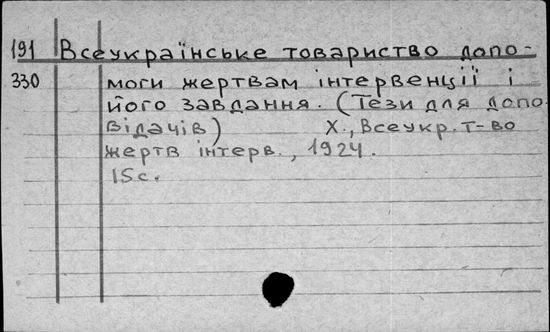 191 Всеукраїнське товариство допо-
330 моги жертвам інтервенції і
його завдання. (Тези для допо
відачів) Х., Всеукр. т-во
жертв інтерв., 1924.
15с.